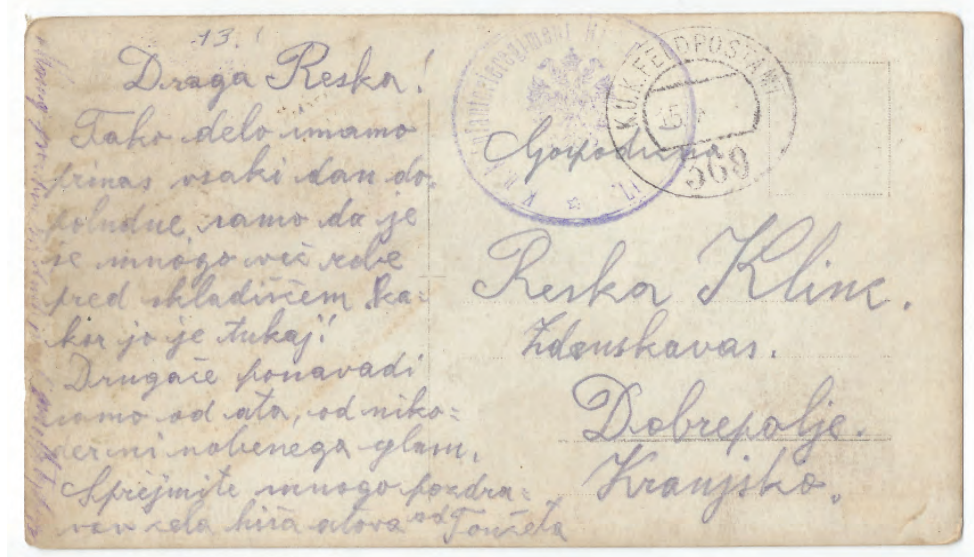 13.
Draga Reska!
Tako delo imamo
prinas vsaki dan do-
poludne, samo da je
še mnogo več robe
pred skladiščem, ka-
kor jo je tukaj!
Drugače ponavadi
samo od ata, od niko-
der ni nobenega glasu.
Sprejmite mnogo pozdra-
vov cela hiša atova od Tončeta
K.U.K. FELDPOSTAMT
369
Gospodična
Reska Klinc.
Zdenskavas.
Dobrepolje.
Kranjsko.